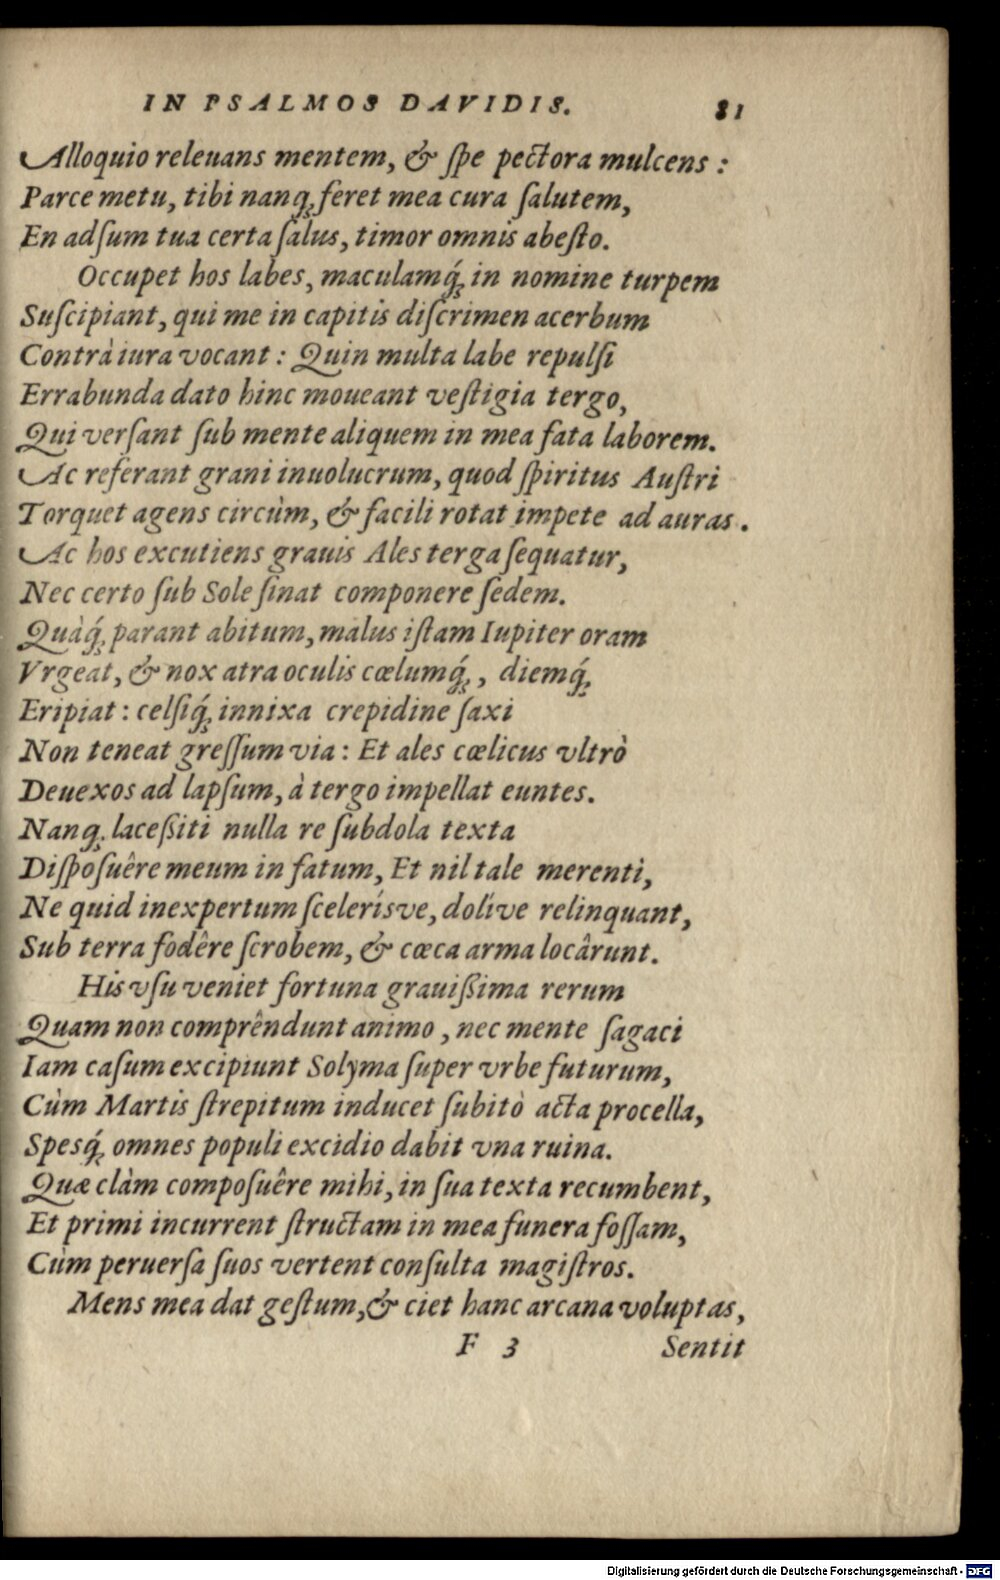 IN PSALMOS DAVIDIS. 81
Alloquio releuans mentem, & ſpe pectora mulcens :
Parce metu, tibi nanq; feret mea cura ſalutem,
En adſum tua certa ſalus, timor omnis abeſto.
Occupet hos labes, maculamq́; in nomine turpem
Suſcipiant, qui me in capitis diſcrimen acerbum
Contrà iura vocant : Quin multa labe repulſi
Errabunda dato hinc moueant veſtigia tergo,
Qui verſant ſub mente aliquem in mea fata laborem.
Ac referant grani inuolucrum, quod ſpiritus Auſtri
Torquet agens circùm, & facili rotat impete ad auras.
Ac hos excutiens grauis Ales terga ſequatur,
Nec certo ſub Sole ſinat componere ſedem.
Quàq́; parant abitum, malus iſtam Iupiter oram
Vrgeat, & nox atra oculis cœlumq́;, diemq́;
Eripiat : celſiq́; innixa crepidine ſaxi
Non teneat greſſum via : Et ales cœlicus vltrò
Deuexos ad lapſum, à tergo impellat euntes.
Nanq; laceßiti nulla re ſubdola texta
Diſpoſuêre meum in fatum, Et nil tale merenti,
Ne quid inexpertum ſcelerísve, dolíve relinquant,
Sub terra fodêre ſcrobem, & cœca arma locârunt.
His vſu veniet fortuna grauißima rerum
Quam non comprêndunt animo, nec mente ſagaci
Iam caſum excipiunt Solyma ſuper vrbe futurum,
Cùm Martis ſtrepitum inducet ſubitò acta procella,
Spesq́; omnes populi excidio dabit vna ruina.
Quæ clàm compoſuêre mihi, in ſua texta recumbent,
Et primi incurrent ſtructam in mea funera foſſam,
Cùm peruerſa ſuos vertent conſulta magiſtros.
Mens mea dat geſtum, & ciet hanc arcana voluptas,
F 3 Sentit
Digitalisierung gefördert durch die Deutsche Forschungsgemeinschaft - DFG